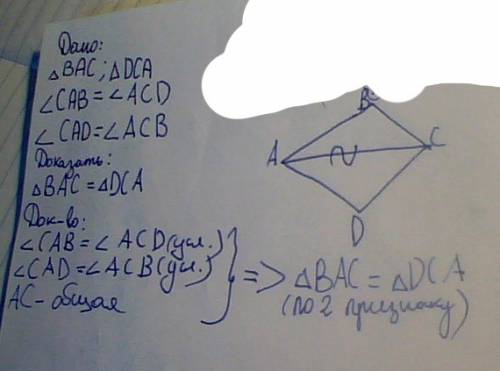 Дано:
△BAC; △DCA
∠CAB=∠ACD
∠CAD=∠ACB
Доказать:
△BAC=△DCA
Док-во:
∠CAB=∠ACD(усл.)
∠CAD=∠ACB(усл.)
AC-общая
=> △BAC=△DCA
(по 2 признаку)
B
A
C
D